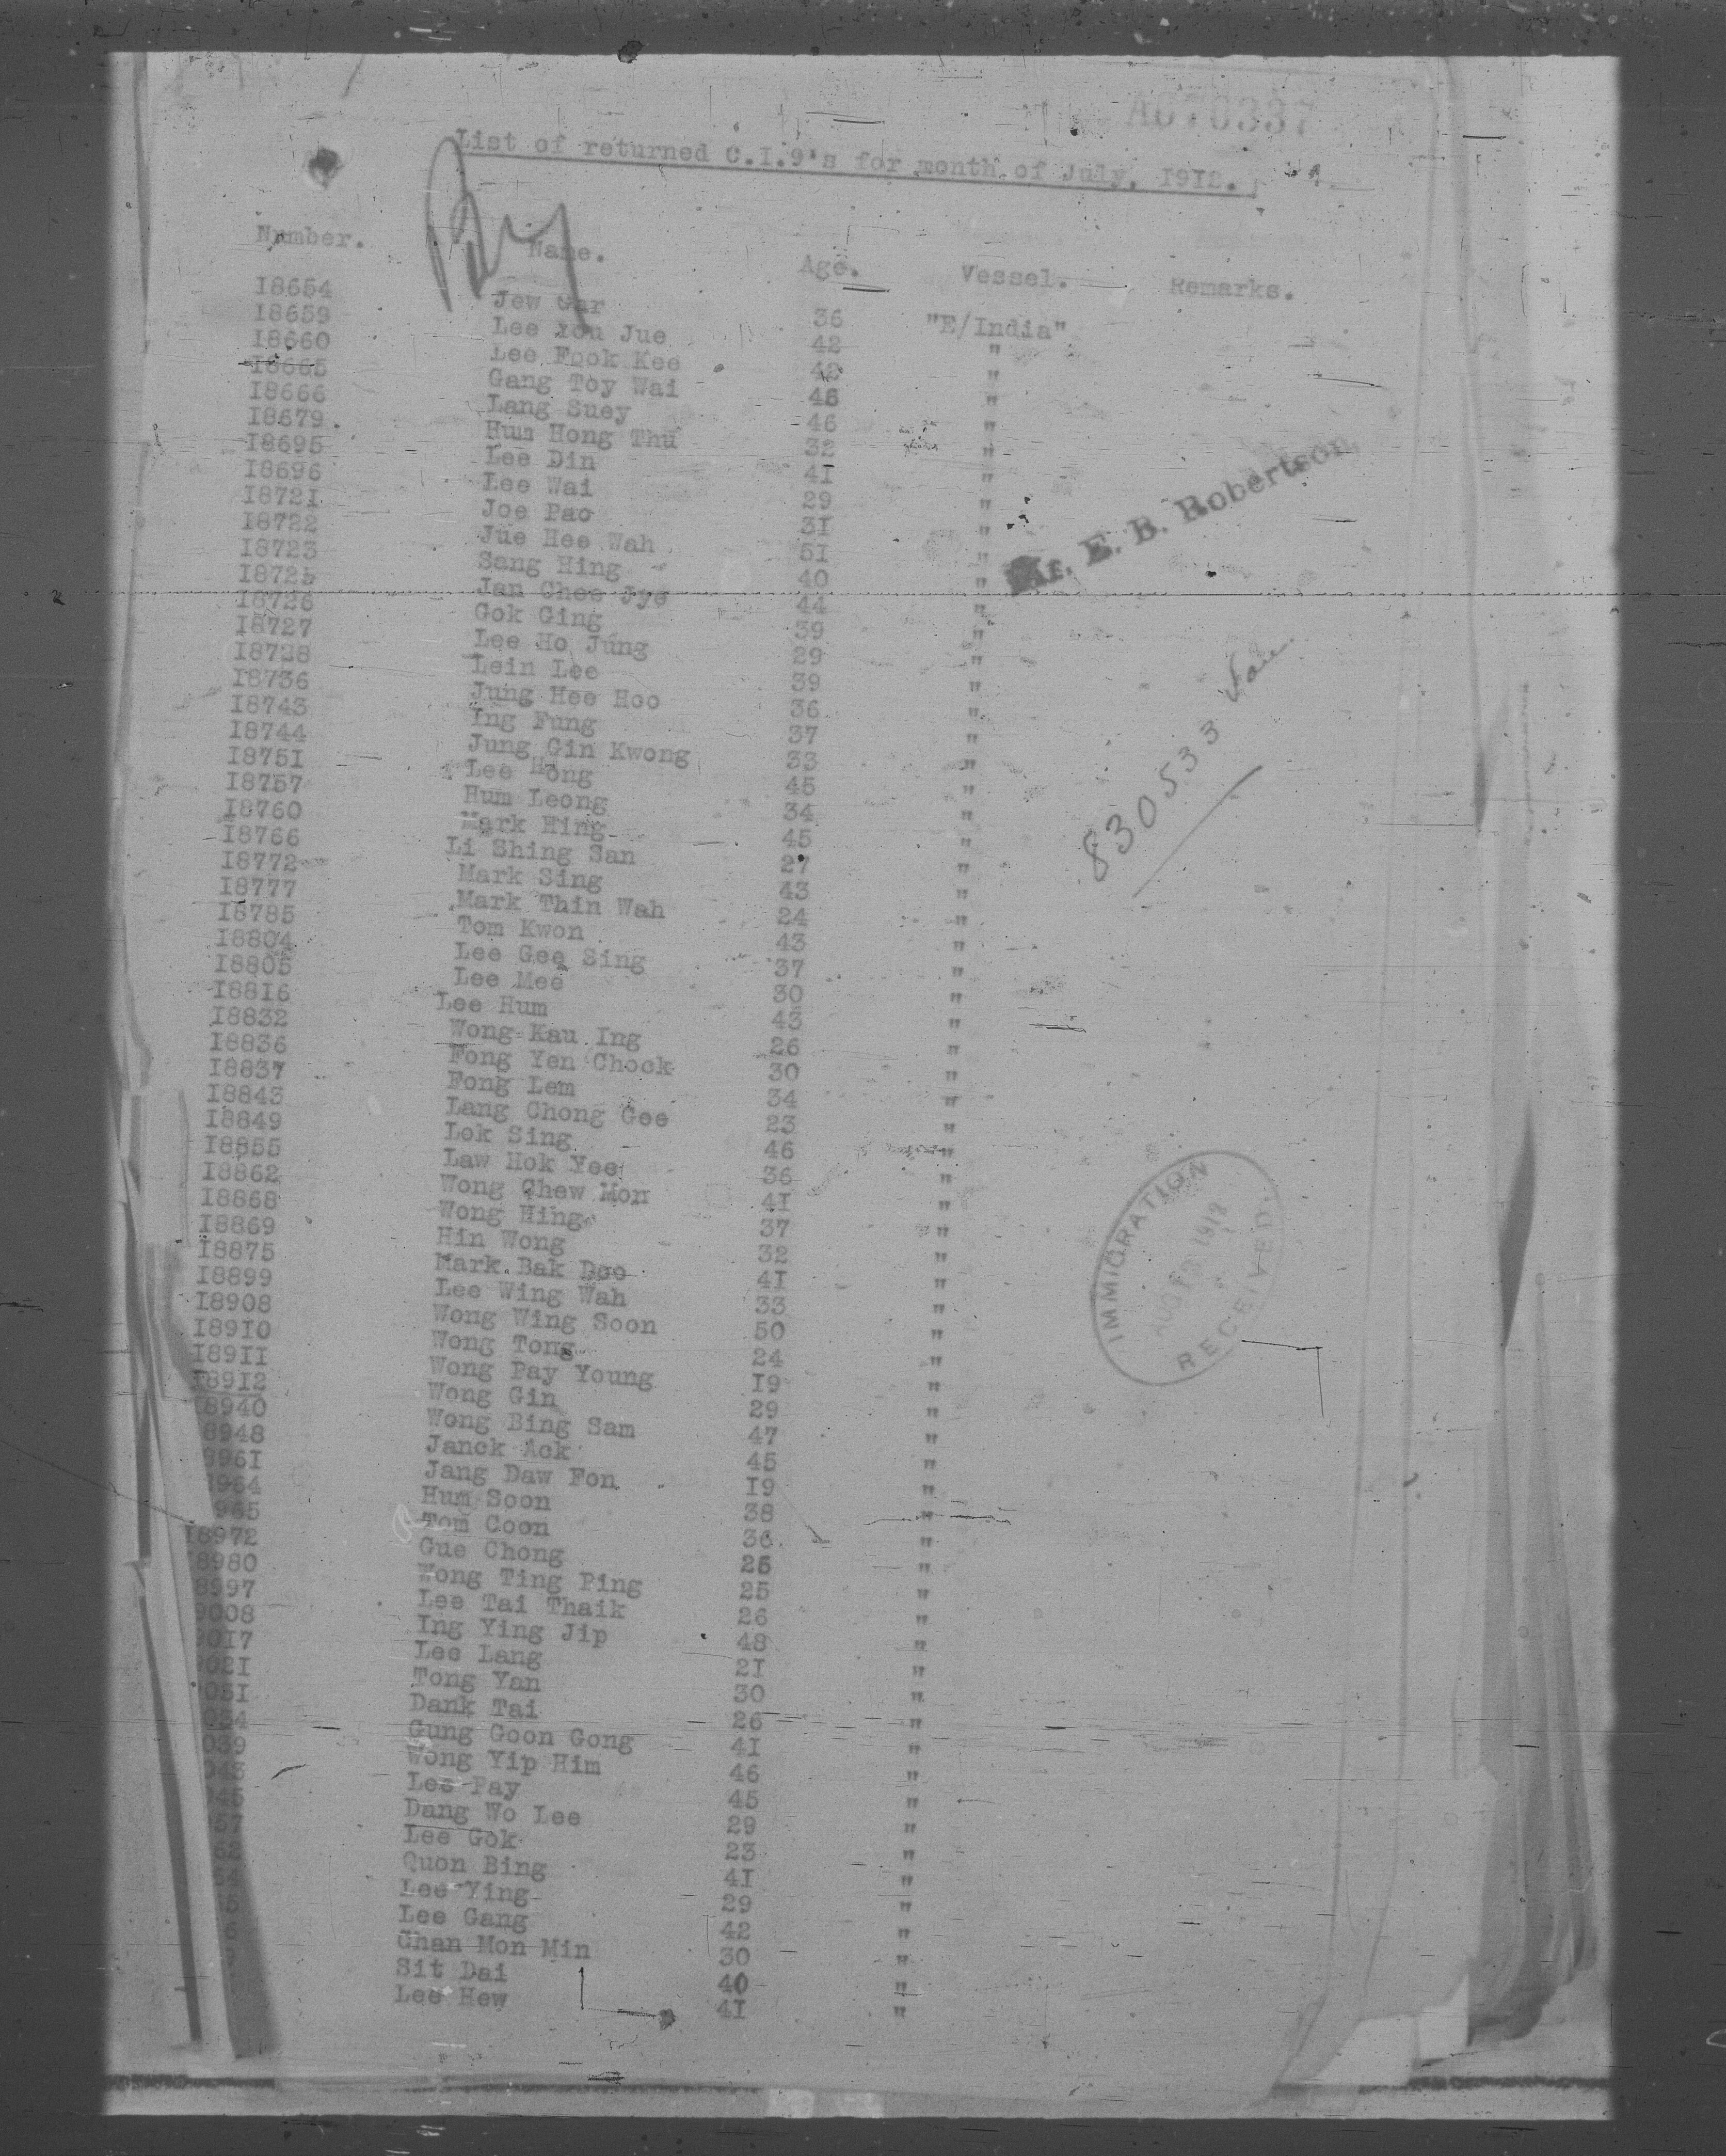 A670337
List of returned C.I.9's for month of July, I9I2.
Number. Name. Age. Vessel. Remarks.
I8654 Jew Gar 36 "E/India"
I8659 Lee You Jue 42 "
I8660 Lee Fook Kee 42 "
I8665 Gang Toy Wai 46 "
I8666 Lang Suey 46 "
I8679 Hum Hong Thu 32 "
I8695 Lee Din 4I "
I8696 Lee Wai 29 "
I872I Joe Pao 3I "
I8722 Jue Hee Wah 5I "
I8723 Sang Hing 40 "
I8725 Jan Chee Jye 44 "
I8726 Gok Ging 39 "
I8727 Lee Ho Jung 29 "
I8728 Lein Lee 39 "
I8736 Jung Hee Hoo 36 "
I8743 Ing Fung 37 "
I8744 Jung Gin Kwong 33 "
I875I Lee Hong 45 "
I8757 Hum Leong 34 "
I8760 Mark Hing 45 "
I8766 Li Shing San 27 "
I8772 Mark Sing 43 "
I8777 Mark Thin Wah 24 "
I8785 Tom Kwon 43 "
I8804 Lee Gee Sing 37 "
I8805 Lee Mee 30 "
I88I6 Lee Hum 43 "
I8832 Wong Kau Ing 26 "
I8836 Fong Yen Chock 30 "
I8837 Fong Lem 34 "
I8843 Lang Chong Gee 23 "
I8849 Lok Sing 46 "
I8855 Law Hok Yee 36 "
I8862 Wong Chew Mon 4I "
I8868 Wong Hing 37 "
I8869 Hin Wong 32 "
I8875 Mark Bak Doo 4I "
I8899 Lee Wing Wah 33 "
I8908 Wong Wing Soon 50 "
I89I0 Wong Tong 24 "
I89II Wong Pay Young I9 "
I89I2 Wong Gin 29 "
I8940 Wong Bing Sam 47 "
8948 Janck Ack 45 "
896I Jang Daw Fon I9 "
964 Hum Soon 38 "
965 Tom Coon 36 "
I8972 Gue Chong 26 "
8980 Wong Ting Ping 25 "
8997 Lee Tai Thaik 26 "
9008 Ing Ying Jip 48 "
90I7 Lee Lang 2I "
902I Tong Yan 30 "
03I Dank Tai 26 "
034 Gung Goon Gong 4I "
039 Wong Yip Him 46 "
043 Lee Pay 45 "
45 Dang Wo Lee 29 "
57 Lee Gok 23 "
62 Quon Bing 4I "
64 Lee Ying 29 "
5 Lee Gang 42 "
6 Chan Mon Min 30 "
Sit Dai 40 "
Lee Hew 4I "
Mr. E. B. Robertson
830533
IMMIGRATION
AUG 12 1912
RECEIVED